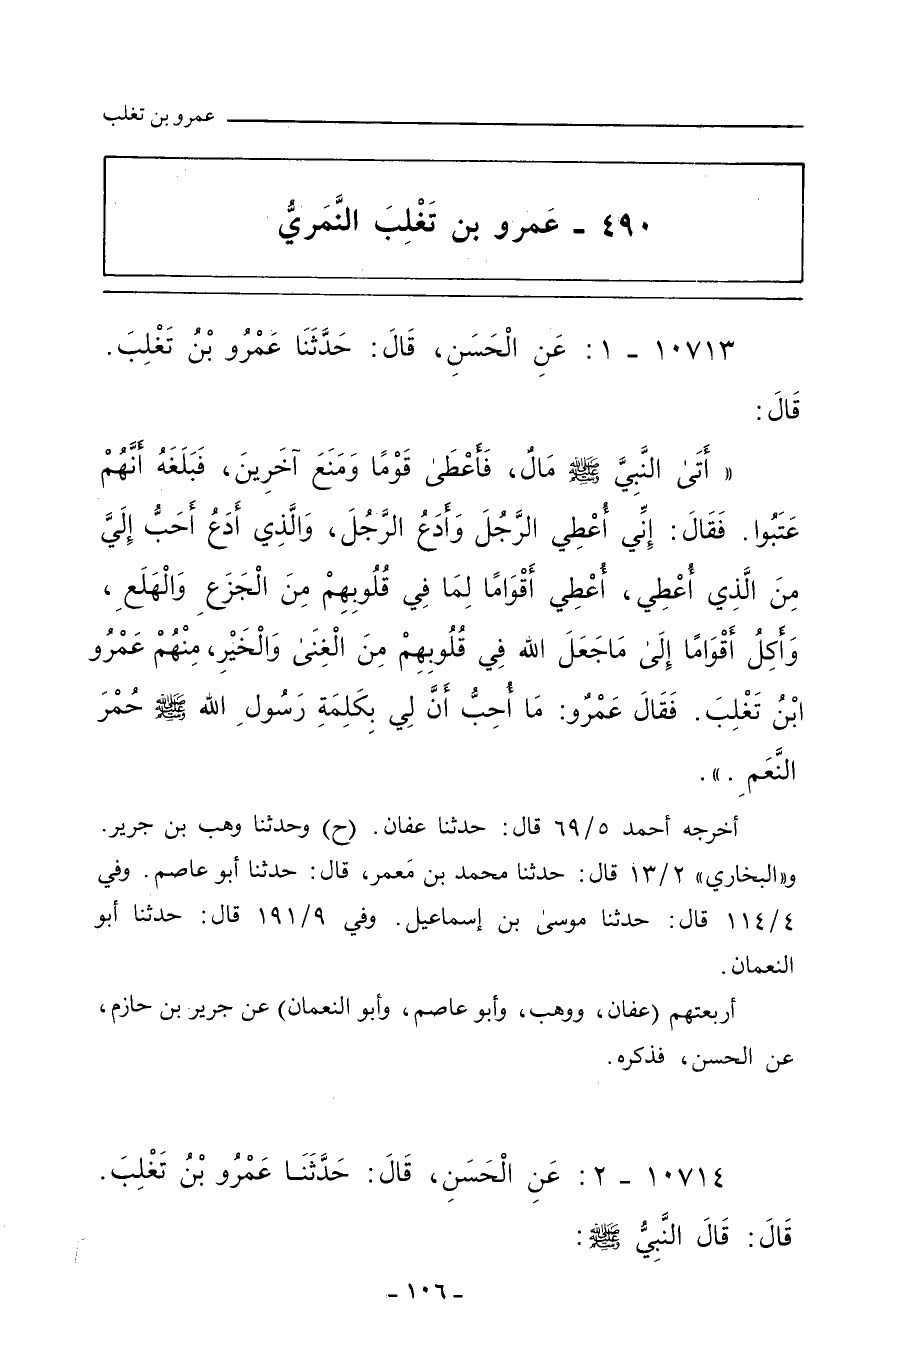 عمرو بن تغلب
٤٩٠ - عَمرو بن تَغْلِبَ النَّمَريُّ
١٠٧١٣ - ١: عَنِ الْحَسَنِ، قَالَ: حَدَّثَنَا عَمْرُو بْنُ تَغْلِبَ.
قَالَ:
« أَتَىٰ النَّبِيَّ ﷺ مَالٌ، فَأَعْطَىٰ قَوْمًا وَمَنَعَ آخَرِينَ، فَبَلَغَهُ أَنَّهُمْ
عَتَبُوا. فَقَالَ: إِنِّي أُعْطِي الرَّجُلَ وَأَدَعُ الرَّجُلَ، وَالَّذِي أَدَعُ أَحَبُّ إِلَيَّ
مِنَ الَّذِي أُعْطِي، أُعْطِي أَقْوَامًا لِمَا فِي قُلُوبِهِمْ مِنَ الْجَزَعِ وَالْهَلَعِ،
وَأَكِلُ أَقْوَامًا إِلَىٰ مَاجَعَلَ الله فِي قُلُوبِهِمْ مِنَ الْغِنَىٰ وَالْخَيْرِ، مِنْهُمْ عَمْرُو
ابْنُ تَغْلِبَ. فَقَالَ عَمْرٌو: مَا أُحِبُّ أَنَّ لِي بِكَلِمَةِ رَسُولِ الله ﷺ حُمْرَ
النَّعَمِ .».
أخرجه أحمد ٦٩/٥ قال: حدثنا عفان. (ح) وحدثنا وهب بن جرير.
و«البخاري» ١٣/٢ قال: حدثنا محمد بن مَعمر، قال: حدثنا أبو عاصم. وفي
١١٤/٤ قال: حدثنا موسىٰ بن إسماعيل. وفي ١٩١/٩ قال: حدثنا أبو
النعمان.
أربعتهم (عفان، ووهب، وأبو عاصم، وأبو النعمان) عن جرير بن حازم،
عن الحسن، فذكره.
١٠٧١٤ - ٢: عَنِ الْحَسَنِ، قَالَ: حَدَّثَنَا عَمْرُو بْنُ تَغْلِبَ.
قَالَ: قَالَ النَّبِيُّ ﷺ:
- ١٠٦ -